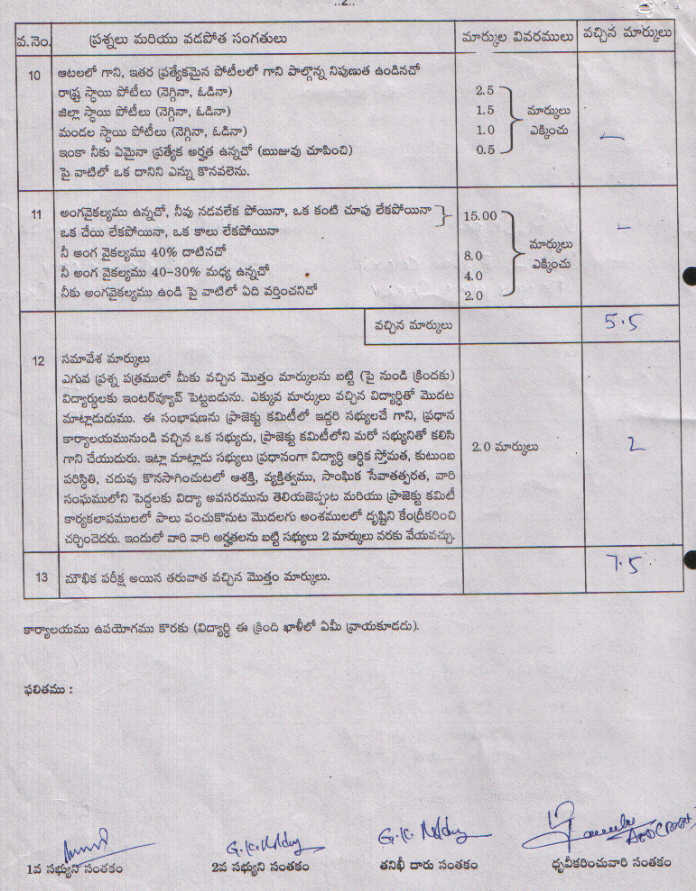 ..2..
వ.నెం. ప్రశ్నలు మరియు వడపోత సంగతులు మార్కుల వివరములు వచ్చిన మార్కులు
10 ఆటలలో గాని, ఇతర ప్రత్యేకమైన పోటీలలో గాని పాల్గొన్న నిపుణుత ఉండినచో
రాష్ట్ర స్థాయి పోటీలు (నెగ్గినా, ఓడినా) 2.5
జిల్లా స్థాయి పోటీలు (నెగ్గినా, ఓడినా) 1.5 మార్కులు
మండల స్థాయి పోటీలు (నెగ్గినా, ఓడినా) 1.0 ఎక్కించు –
ఇంకా నీకు ఏమైనా ప్రత్యేక అర్హత ఉన్నచో (ఋజువు చూపించి) 0.5
పై వాటిలో ఒక దానిని ఎన్ను కొనవలెను.
11 అంగవైకల్యము ఉన్నచో, నీవు నడవలేక పోయినా, ఒక కంటి చూపు లేకపోయినా 15.00
ఒక చేయి లేకపోయినా, ఒక కాలు లేకపోయినా –
నీ అంగ వైకల్యము 40% దాటినచో 8.0 మార్కులు
నీ అంగ వైకల్యము 40-30% మధ్య ఉన్నచో 4.0 ఎక్కించు
నీకు అంగవైకల్యము ఉండి పై వాటిలో ఏది వర్తించనిచో 2.0
వచ్చిన మార్కులు 5.5
12 సమావేశ మార్కులు
ఎగువ ప్రశ్న పత్రములో మీకు వచ్చిన మొత్తం మార్కులను బట్టి (పై నుండి క్రిందకు)
విద్యార్థులకు ఇంటర్‌వ్యూవ్ పెట్టబడును. ఎక్కువ మార్కులు వచ్చిన విద్యార్థితో మొదట
మాట్లాడుదుము. ఈ సంభాషణను ప్రాజెక్టు కమిటీలో ఇద్దరి సభ్యులచే గాని, ప్రధాన
కార్యాలయమునుండి వచ్చిన ఒక సభ్యుడు, ప్రాజెక్టు కమిటీలోని మరో సభ్యునితో కలిసి
గాని చేయుదురు. ఇట్లా మాట్లాడు సభ్యులు ప్రధానంగా విద్యార్థి ఆర్థిక స్తోమత, కుటుంబ 2.0 మార్కులు 2
పరిస్థితి, చదువు కొనసాగించుటలో ఆశక్తి, వ్యక్తిత్వము, సాంఘిక సేవాతత్పరత, వారి
సంఘములోని పెద్దలకు విద్యా అవసరమును తెలియజెప్పుట మరియు ప్రాజెక్టు కమిటీ
కార్యకలాపములలో పాలు పంచుకొనుట మొదలగు అంశములలో దృష్టిని కేంద్రీకరించి
చర్చించెదరు. ఇందులో వారి వారి అర్హతలను బట్టి సభ్యులు 2 మార్కులు వరకు వేయవచ్చు.
13 మౌఖిక పరీక్ష అయిన తరువాత వచ్చిన మొత్తం మార్కులు. 7.5
కార్యాలయము ఉపయోగము కొరకు (విద్యార్థి ఈ క్రింది ఖాళీలో ఏమీ వ్రాయకూడదు).
ఫలితము :
G.K. G.K.
1వ సభ్యుని సంతకం 2వ సభ్యుని సంతకం తనిఖీ దారు సంతకం ధృవీకరించువారి సంతకం